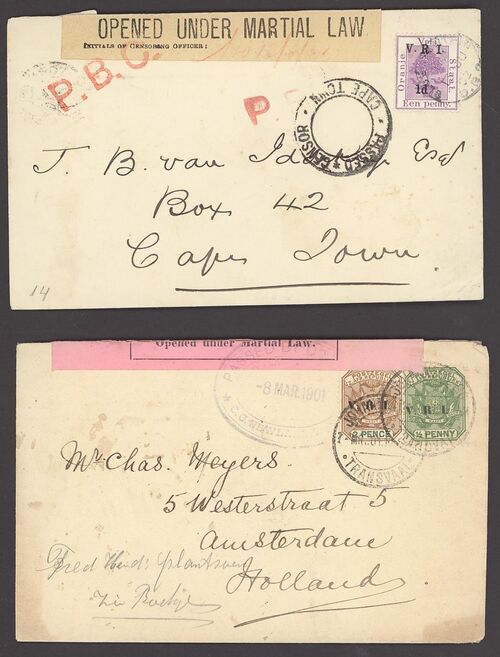 OPENED UNDER MARTIAL LAW
INITIALS OF CENSORING OFFICER:
P.B.C.
P.
V.R.I.
Oranje
Staat.
1d
Een penny.
PASSED CENSOR
CAPE TOWN
J. B. van Esq
Box 42
Cape Town
14
Opened under Martial Law.
PASSED
-8 MAR.1901
2 PENCE
V.R.I.
½ PENNY
TRANSVAAL
Mr Chas. Meyers.
5 Westerstraat 5
Amsterdam
Holland